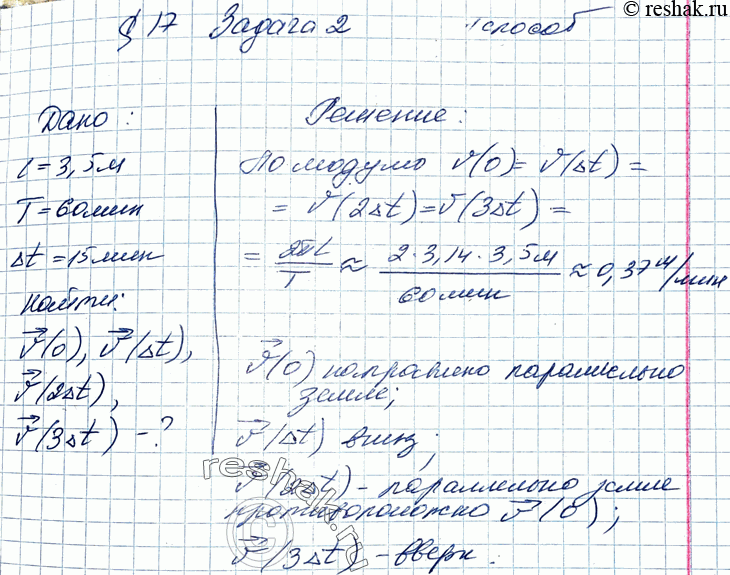 © reshak.ru
§ 17 Задача 2 способ
Дано:
l = 3,5м
T = 60мин
Δt = 15мин
найти:
v⃗(0), v⃗(Δt),
v⃗(2Δt),
v⃗(3Δt) - ?
Решение:
По модулю v(0) = v(Δt) =
= v(2Δt) = v(3Δt) =
= 2πl/T ≈ 2·3,14·3,5м/60мин ≈ 0,37 м/мин
v⃗(0) направлено параллельно
земле;
v⃗(Δt) вниз;
v⃗(2Δt) - параллельно земле
противоположно v⃗(0);
v⃗(3Δt) - вверх.
reshak.ru
©